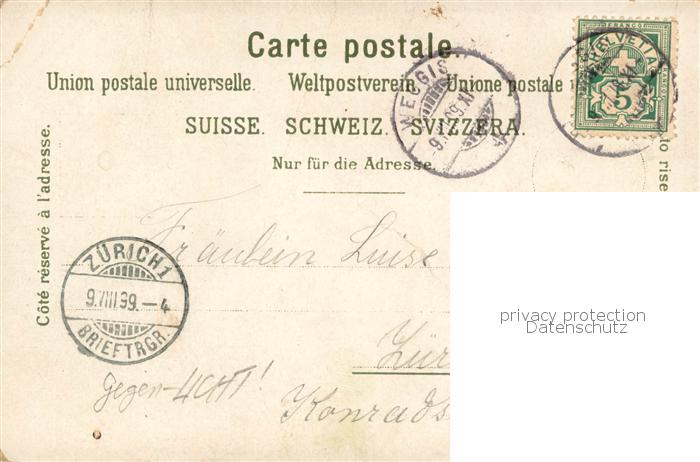 Carte postale.
Union postale universelle. Weltpostverein. Unione postale
SUISSE. SCHWEIZ. SVIZZERA.
Nur für die Adresse.
Côté réservé à l'adresse.
HELVETIA
FRANCO
5
WEGGIS
ZÜRICH 1
9.VIII.99.-4
BRIEFTRGR.
Fräulein Luise
Zür
Gegen-LICHT!
Konrads
privacy protection
Datenschutz